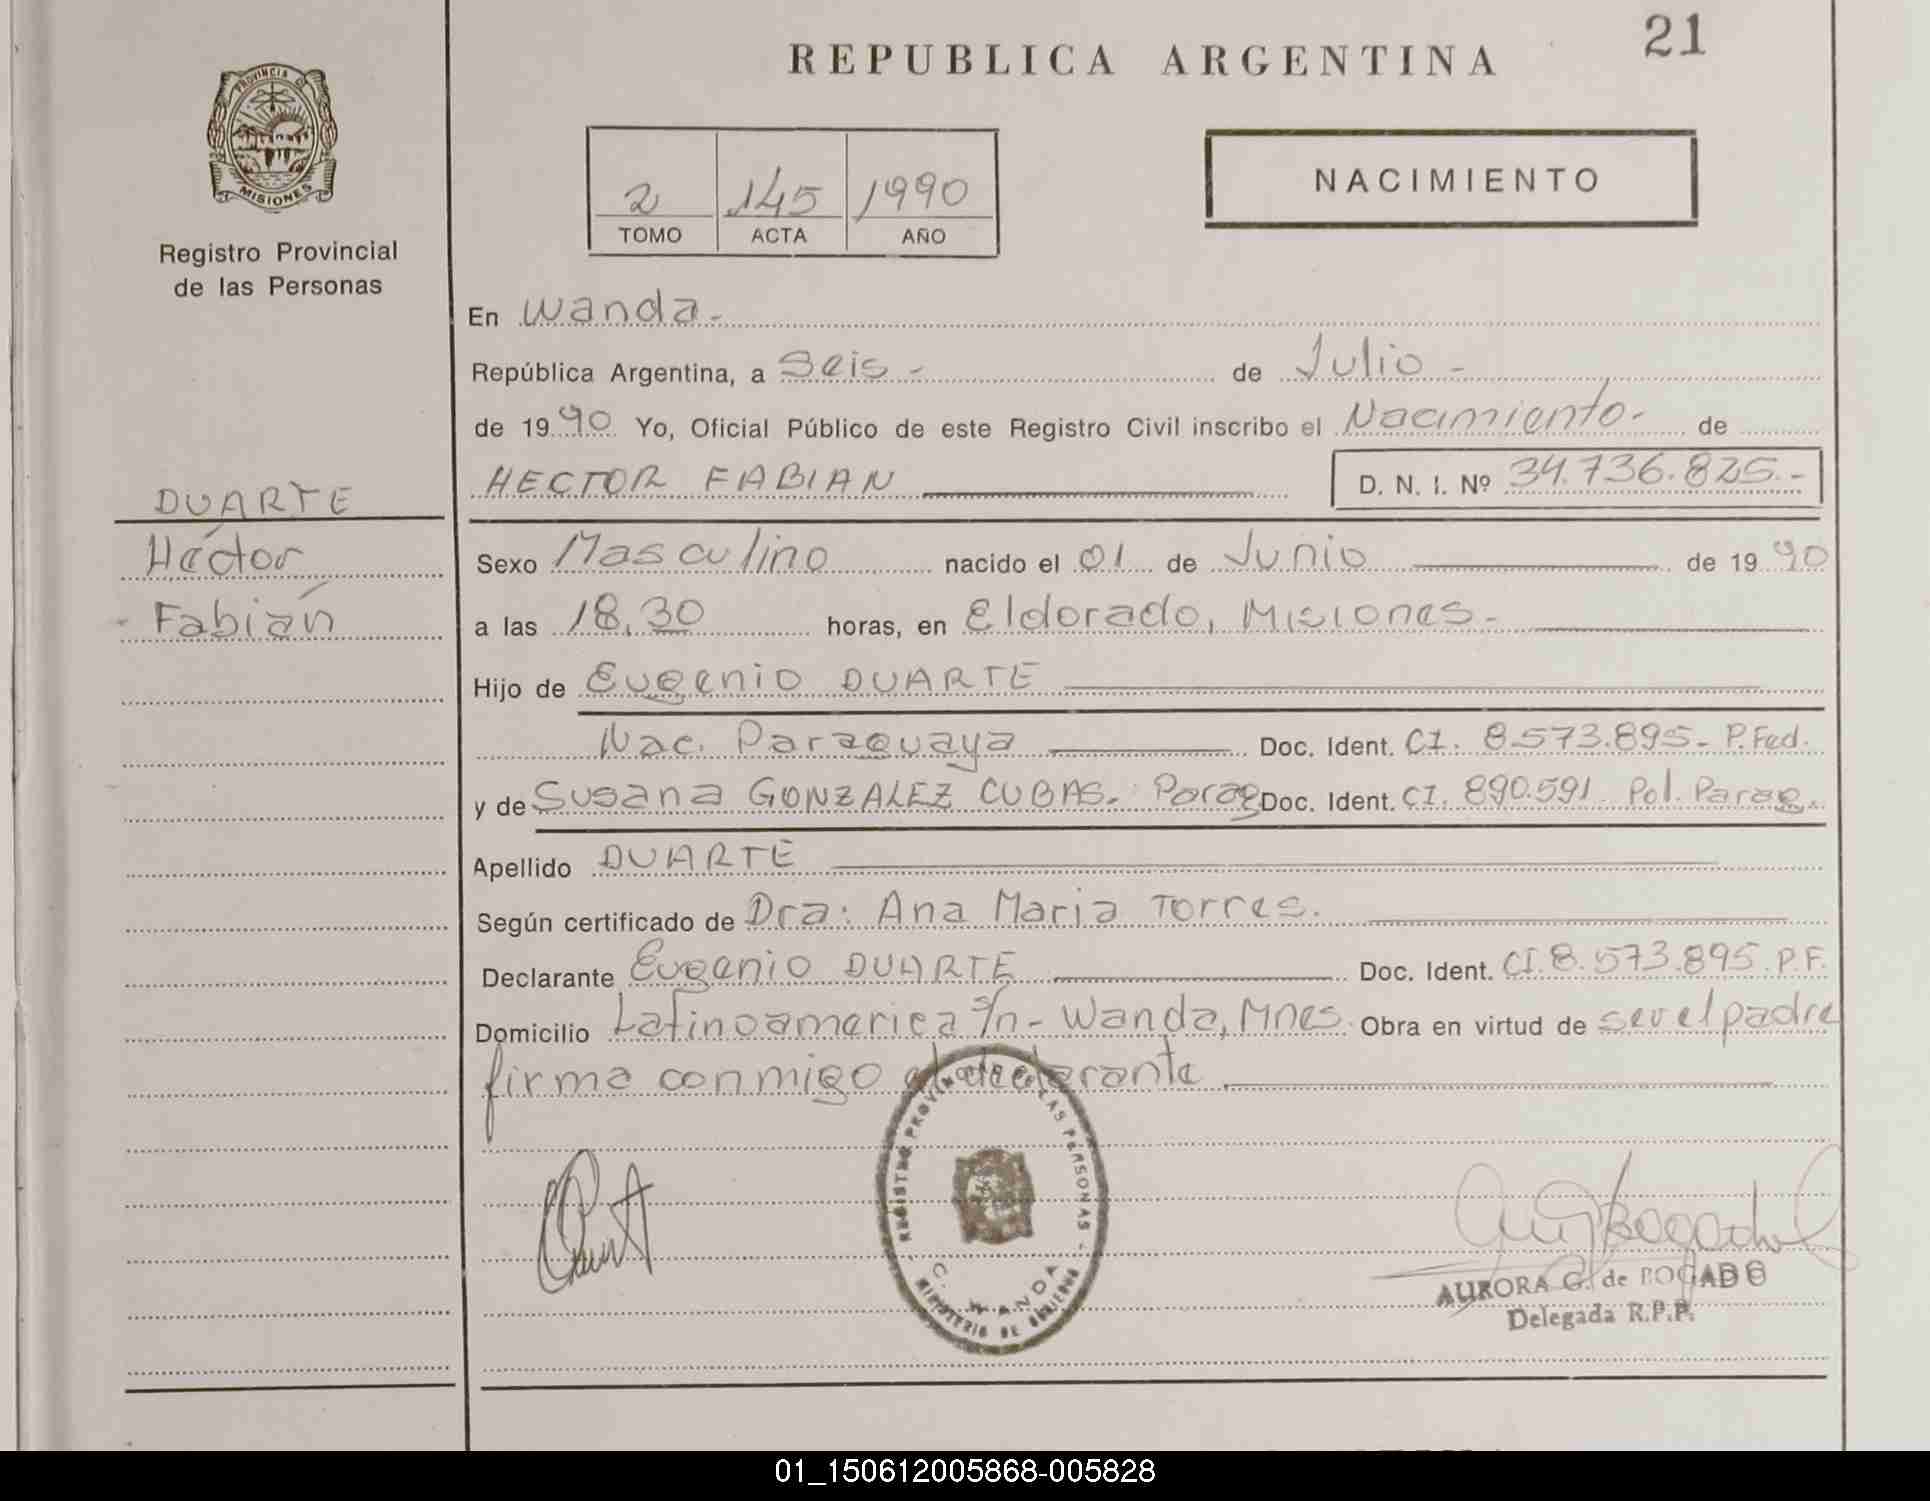 21
REPUBLICA ARGENTINA
PROVINCIA DE
MISIONES
Registro Provincial
de las Personas
2 145 1990
TOMO ACTA AÑO
NACIMIENTO
En Wanda.-
República Argentina, a Seis.- de Julio.-
de 1990 Yo, Oficial Público de este Registro Civil inscribo el Nacimiento.- de
HECTOR FABIAN D. N. I. Nº 34.736.825.-
DUARTE
Héctor
Fabián
Sexo Masculino nacido el 01 de Junio de 1990
a las 18,30 horas, en Eldorado, Misiones.-
Hijo de Eugenio DUARTE
Nac. Paraguaya Doc. Ident. CI. 8.573.895.- P.Fed.
y de Susana GONZALEZ CUBAS. Parag Doc. Ident. CI. 890.591 Pol. Parag.
Apellido DUARTE
Según certificado de Dra: Ana Maria Torres.
Declarante Eugenio DUARTE Doc. Ident. CI.8.573.895.P.F.
Domicilio Latinoamerica s/n- Wanda, Mnes. Obra en virtud de ser el padre
firma conmigo el declarante
REGISTRO PROVINCIAL DE LAS PERSONAS -
C. WANDA
MINISTERIO DE GOBIERNO
AURORA G. de BOGADO
Delegada R.P.P.
01_150612005868-005828